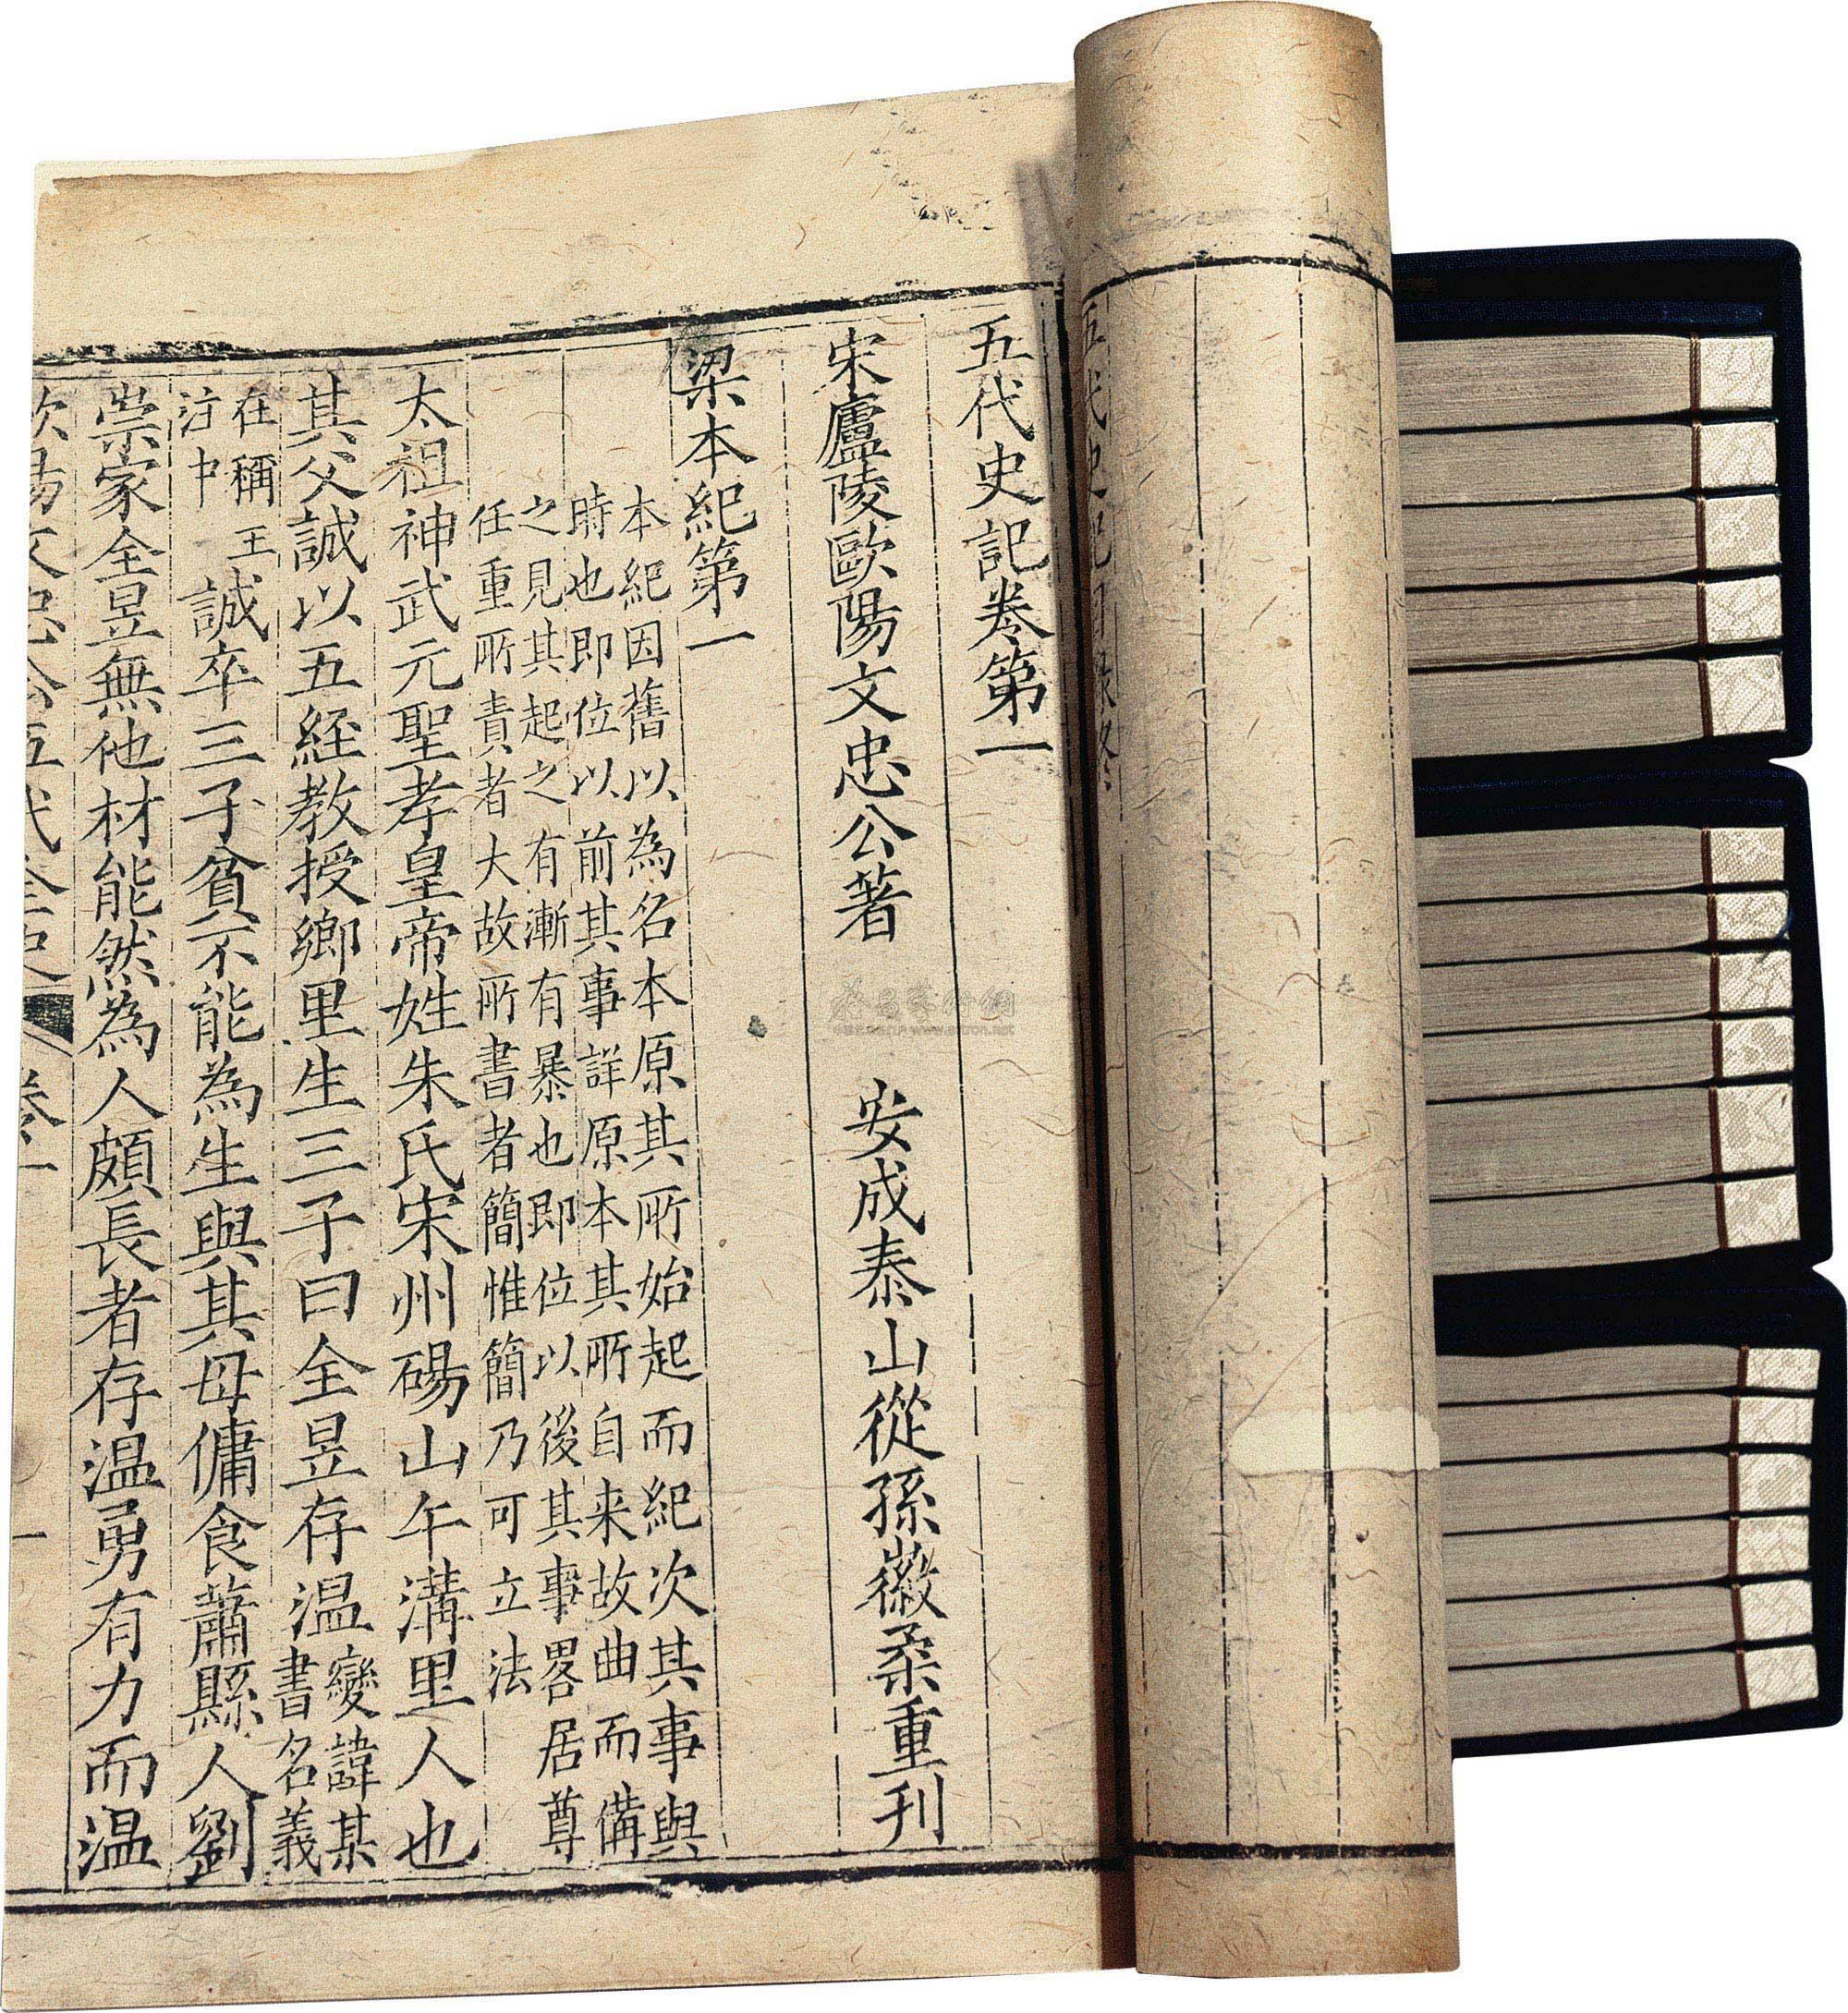 五代史記卷第一
宋廬陵歐陽文忠公著 安成泰山從孫徽柔重刊
梁本紀第一
本紀因舊以為名本原其所始起而紀次其事與
時也即位以前其事詳原本其所自来故曲而備
之見其起之有漸有暴也即位以後其事畧居尊
任重所責者大故所書者簡惟簡乃可立法
太祖神武元聖孝皇帝姓朱氏宋州碭山午溝里人也
其父誠以五經教授鄉里生三子曰全昱存温變諱某書名義
在稱王注中誠卒三子貧不能為生與其母傭食蕭縣人劉
崇家全昱無他材能然為人頗長者存温勇有力而温
欧陽文忠公五代全史 卷一 一